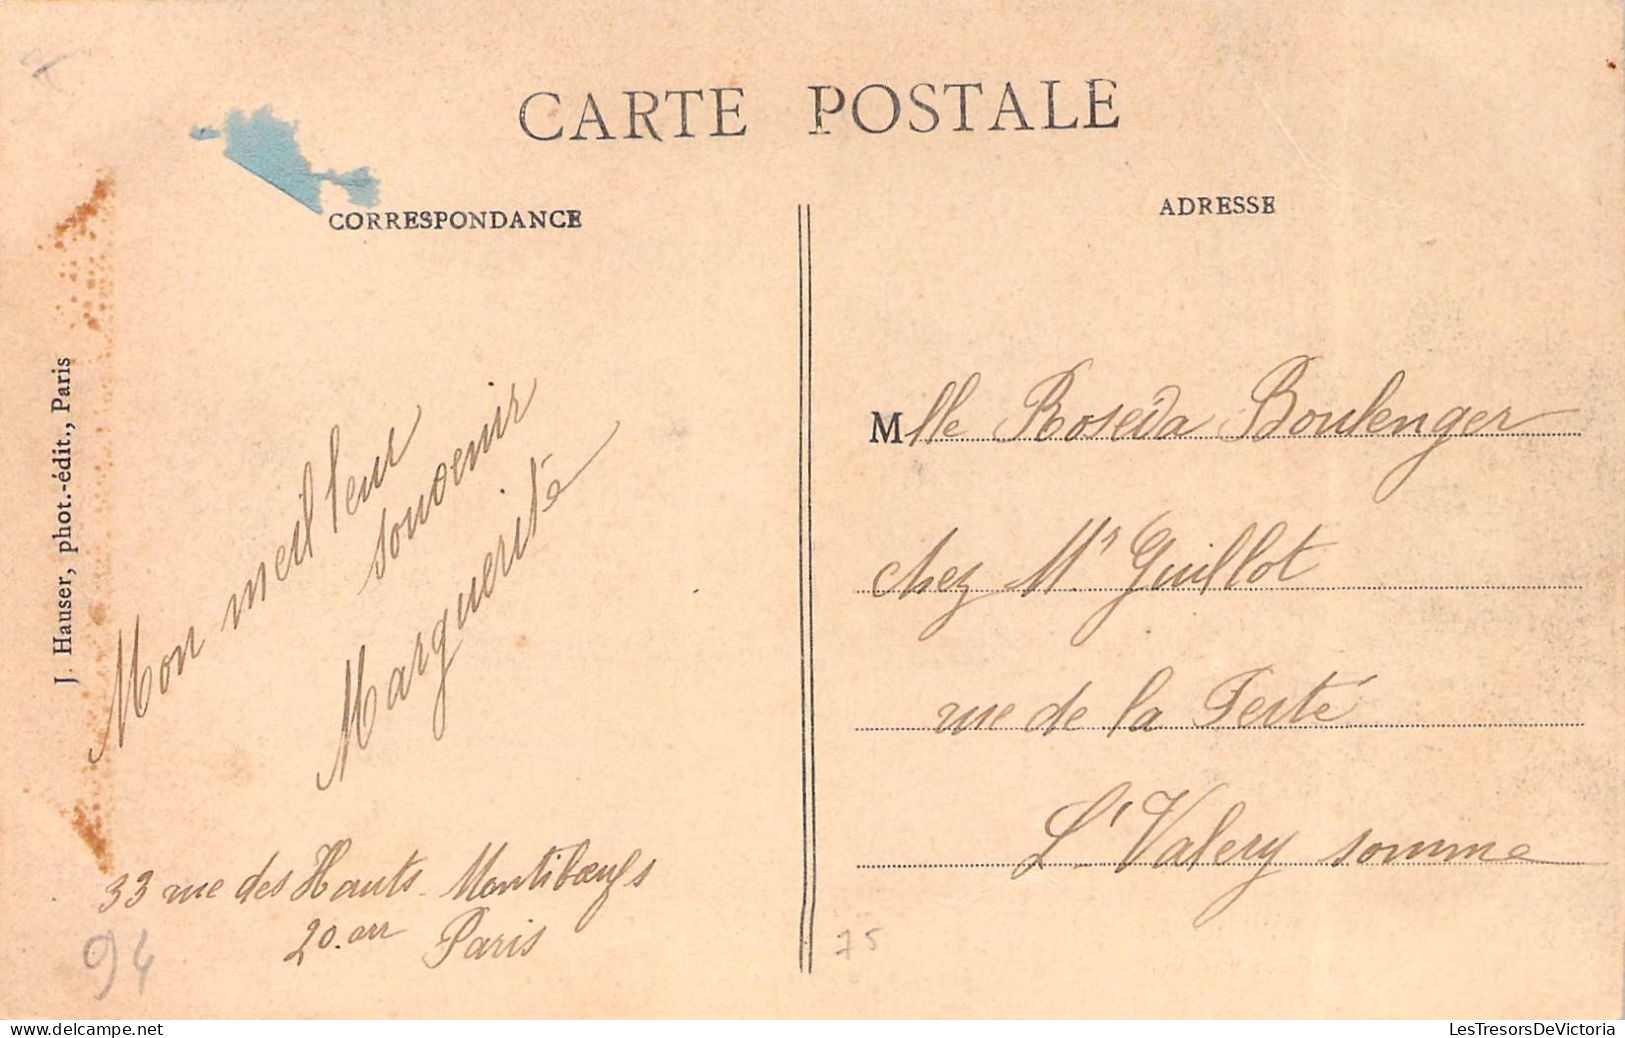 CARTE POSTALE
CORRESPONDANCE
ADRESSE
J. Hauser, phot.-édit., Paris
Mon meilleur
souvenir
Marguerite
33 rue des Hauts Montibœufs
20. arr Paris
94
Mlle Roseda Boulenger
chez Mr Guillot
rue de la Ferté
St Valery somme
75
delcampe.net
LesTresorsDeVictoria